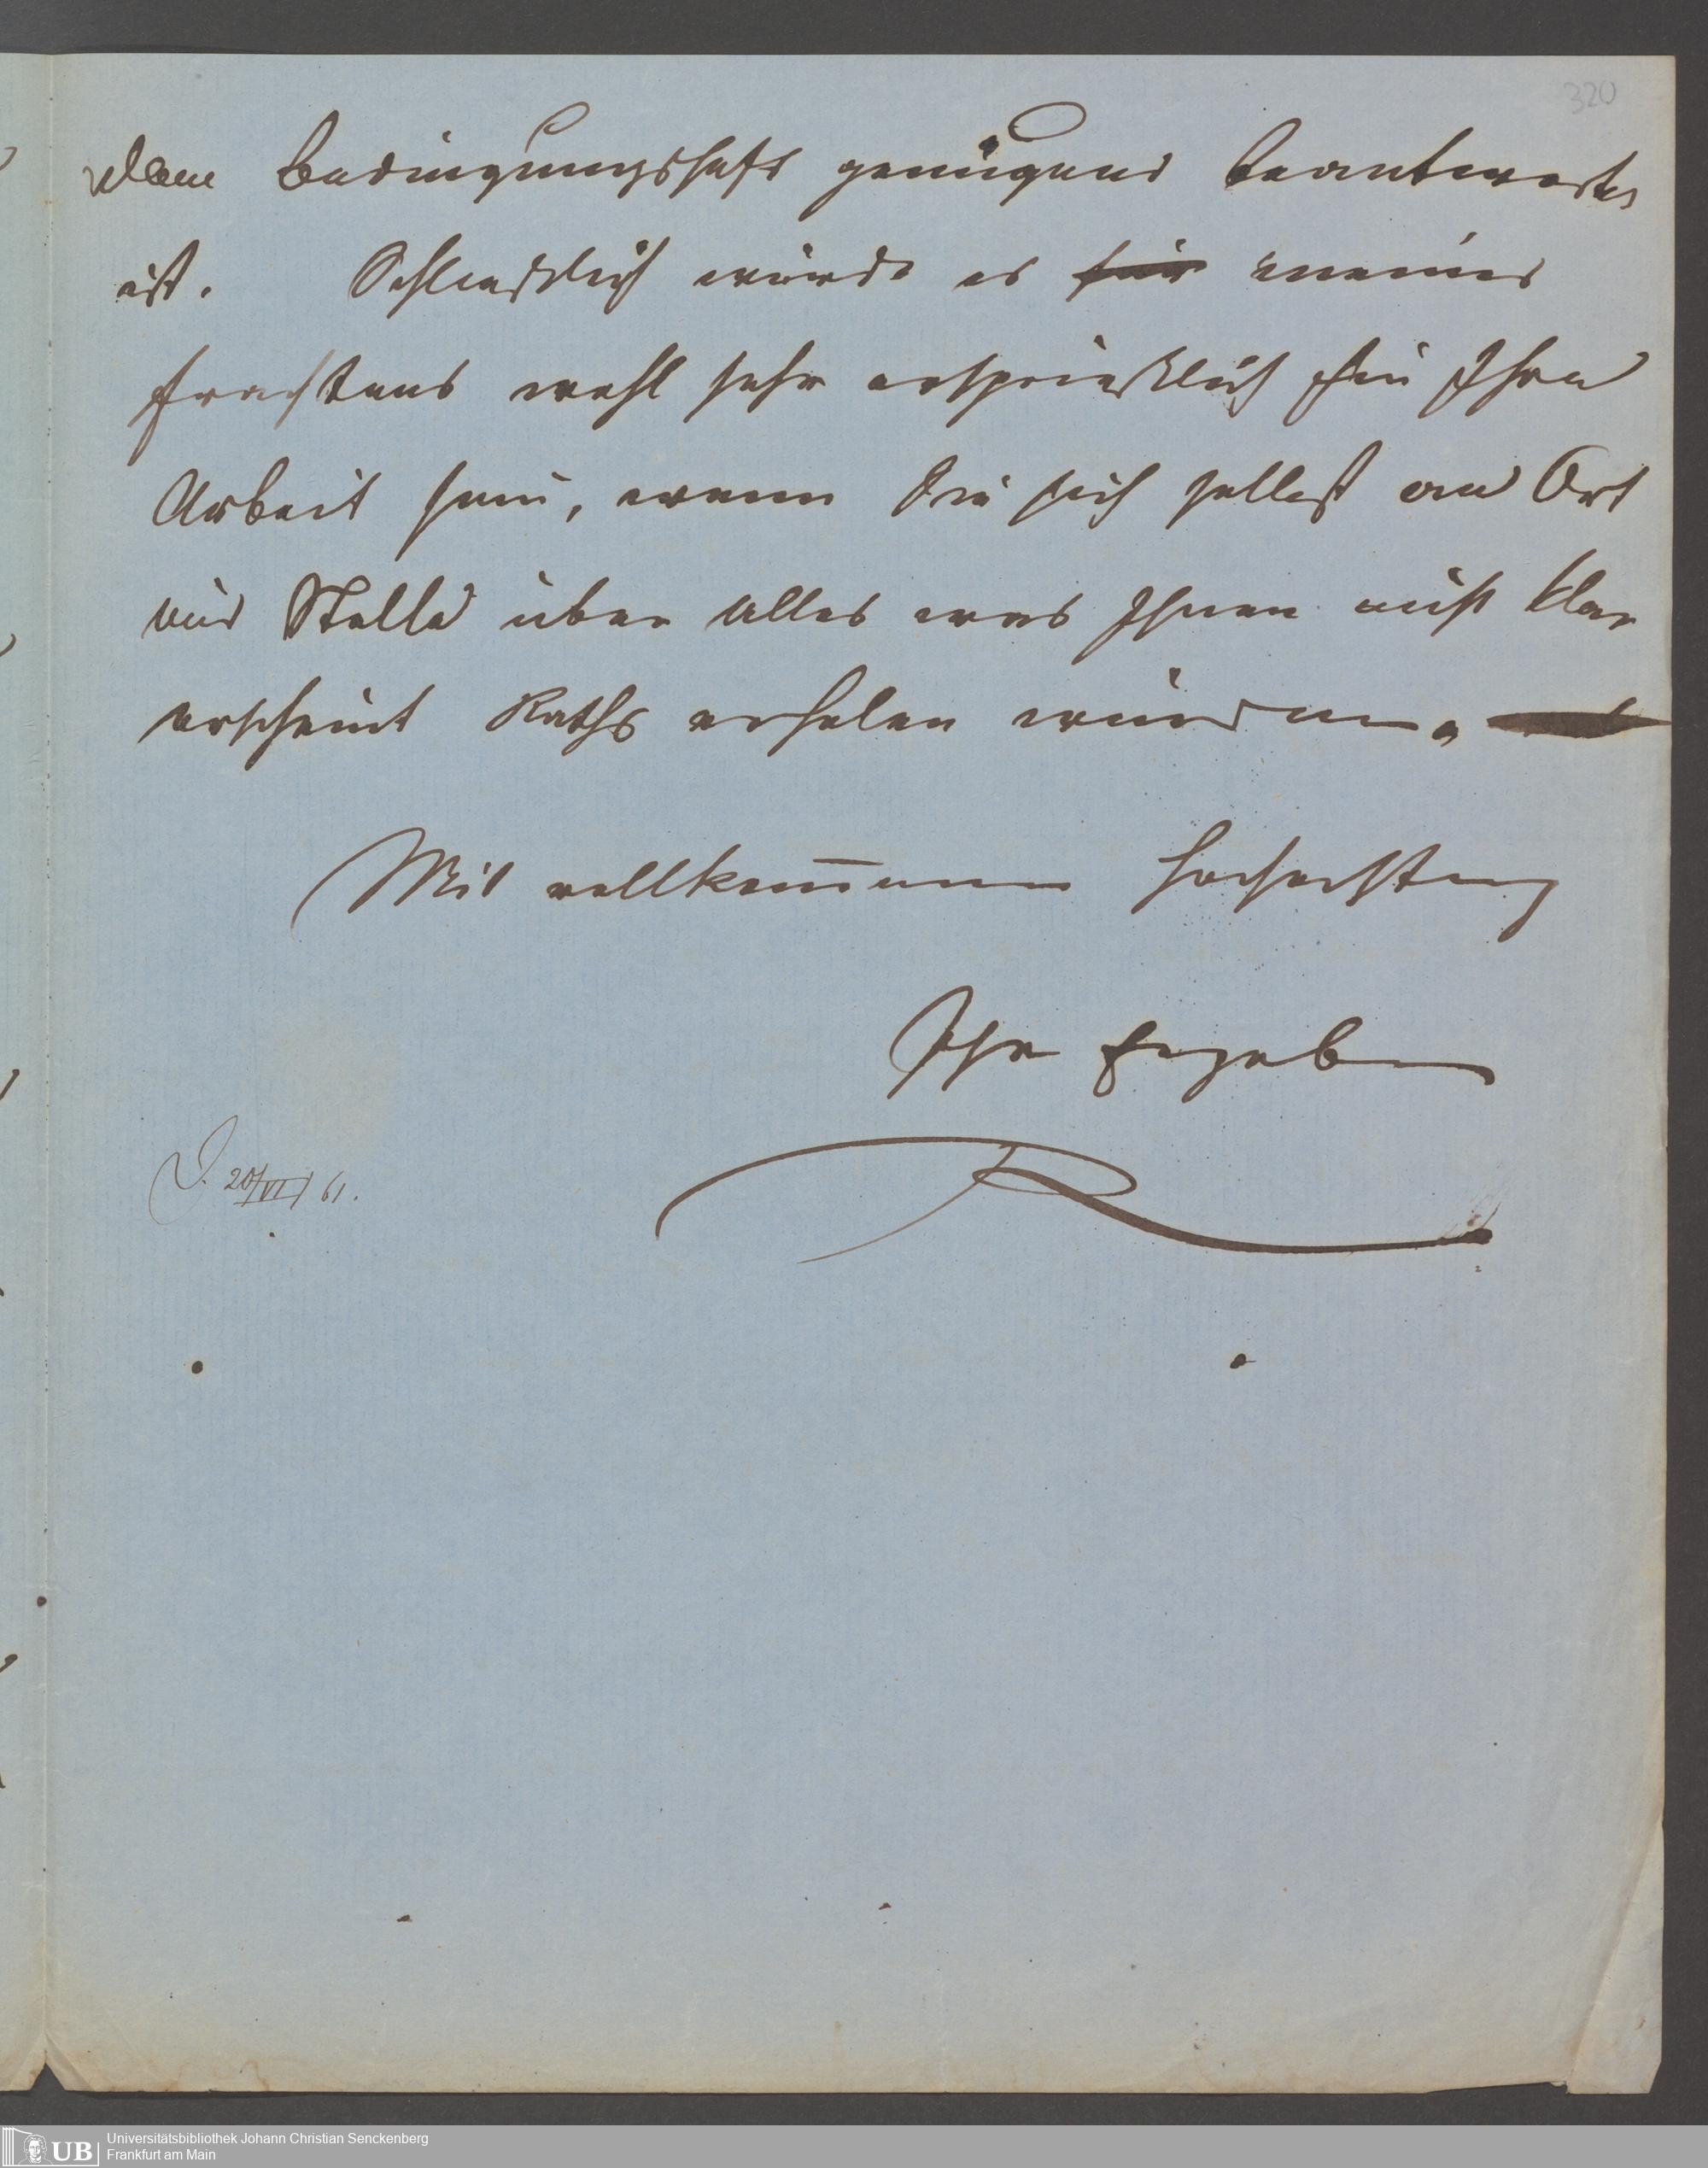 320
dem Bedingungsheft genügend beantwortet
ist. Schließlich würde es für meines
Erachtens wohl sehr ersprießlich für Ihre
Arbeit sein, wenn Sie sich selbst an Ort
und Stelle über Alles was Ihnen nicht klar
erscheint Raths erholen würden.
Mit vollkommener Hochachtung
Ihr Ergeben
R
D. 20/VI 61.
UB Universitätsbibliothek Johann Christian Senckenberg
Frankfurt am Main